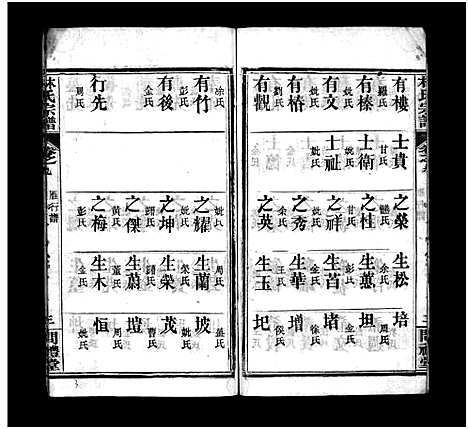 林氏宗譜
有樓
羅氏
有榛
姚氏
有椿
劉氏
有觀
士貴
甘氏
士衛
姚氏
士社
姚氏
之榮
之桂
彭氏
之祥
余氏
之秀
之英
生松
余氏
生蕙
金氏
生苜
王氏
生華
生玉
培
周氏
坦
徐氏
堵
侯氏
增
圯
問禮堂
林氏宗譜
雁行譜
有竹
徐氏
有後
彭氏
金氏
行先
周氏
之耀
姚氏
之坤
之傑
黃氏
之梅
彭氏
生蘭
榮氏
生榮
生蔚
董氏
生木
金氏
坡
茂
曹氏
壇
周氏
恒
姚氏
三
問禮堂